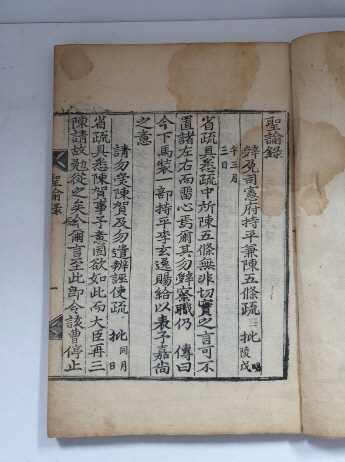 聖諭錄
辭免司憲府持平兼陳五條疏 批
午三月
三日
省疏具悉疏中所陳五條無非切實之言可不
置諸左右而留心焉爾其勿辭察職仍 傳曰
今下馬裝一部持平李玄逸賜給以表予嘉尚
之意
請勿受陳賀及勿遣辨誣使疏 批 同月
日
省疏具悉陳賀事予意固欲如此而大臣再三
陳請故勉從之矣今爾言至此卽令該曹停止
聖諭錄
一